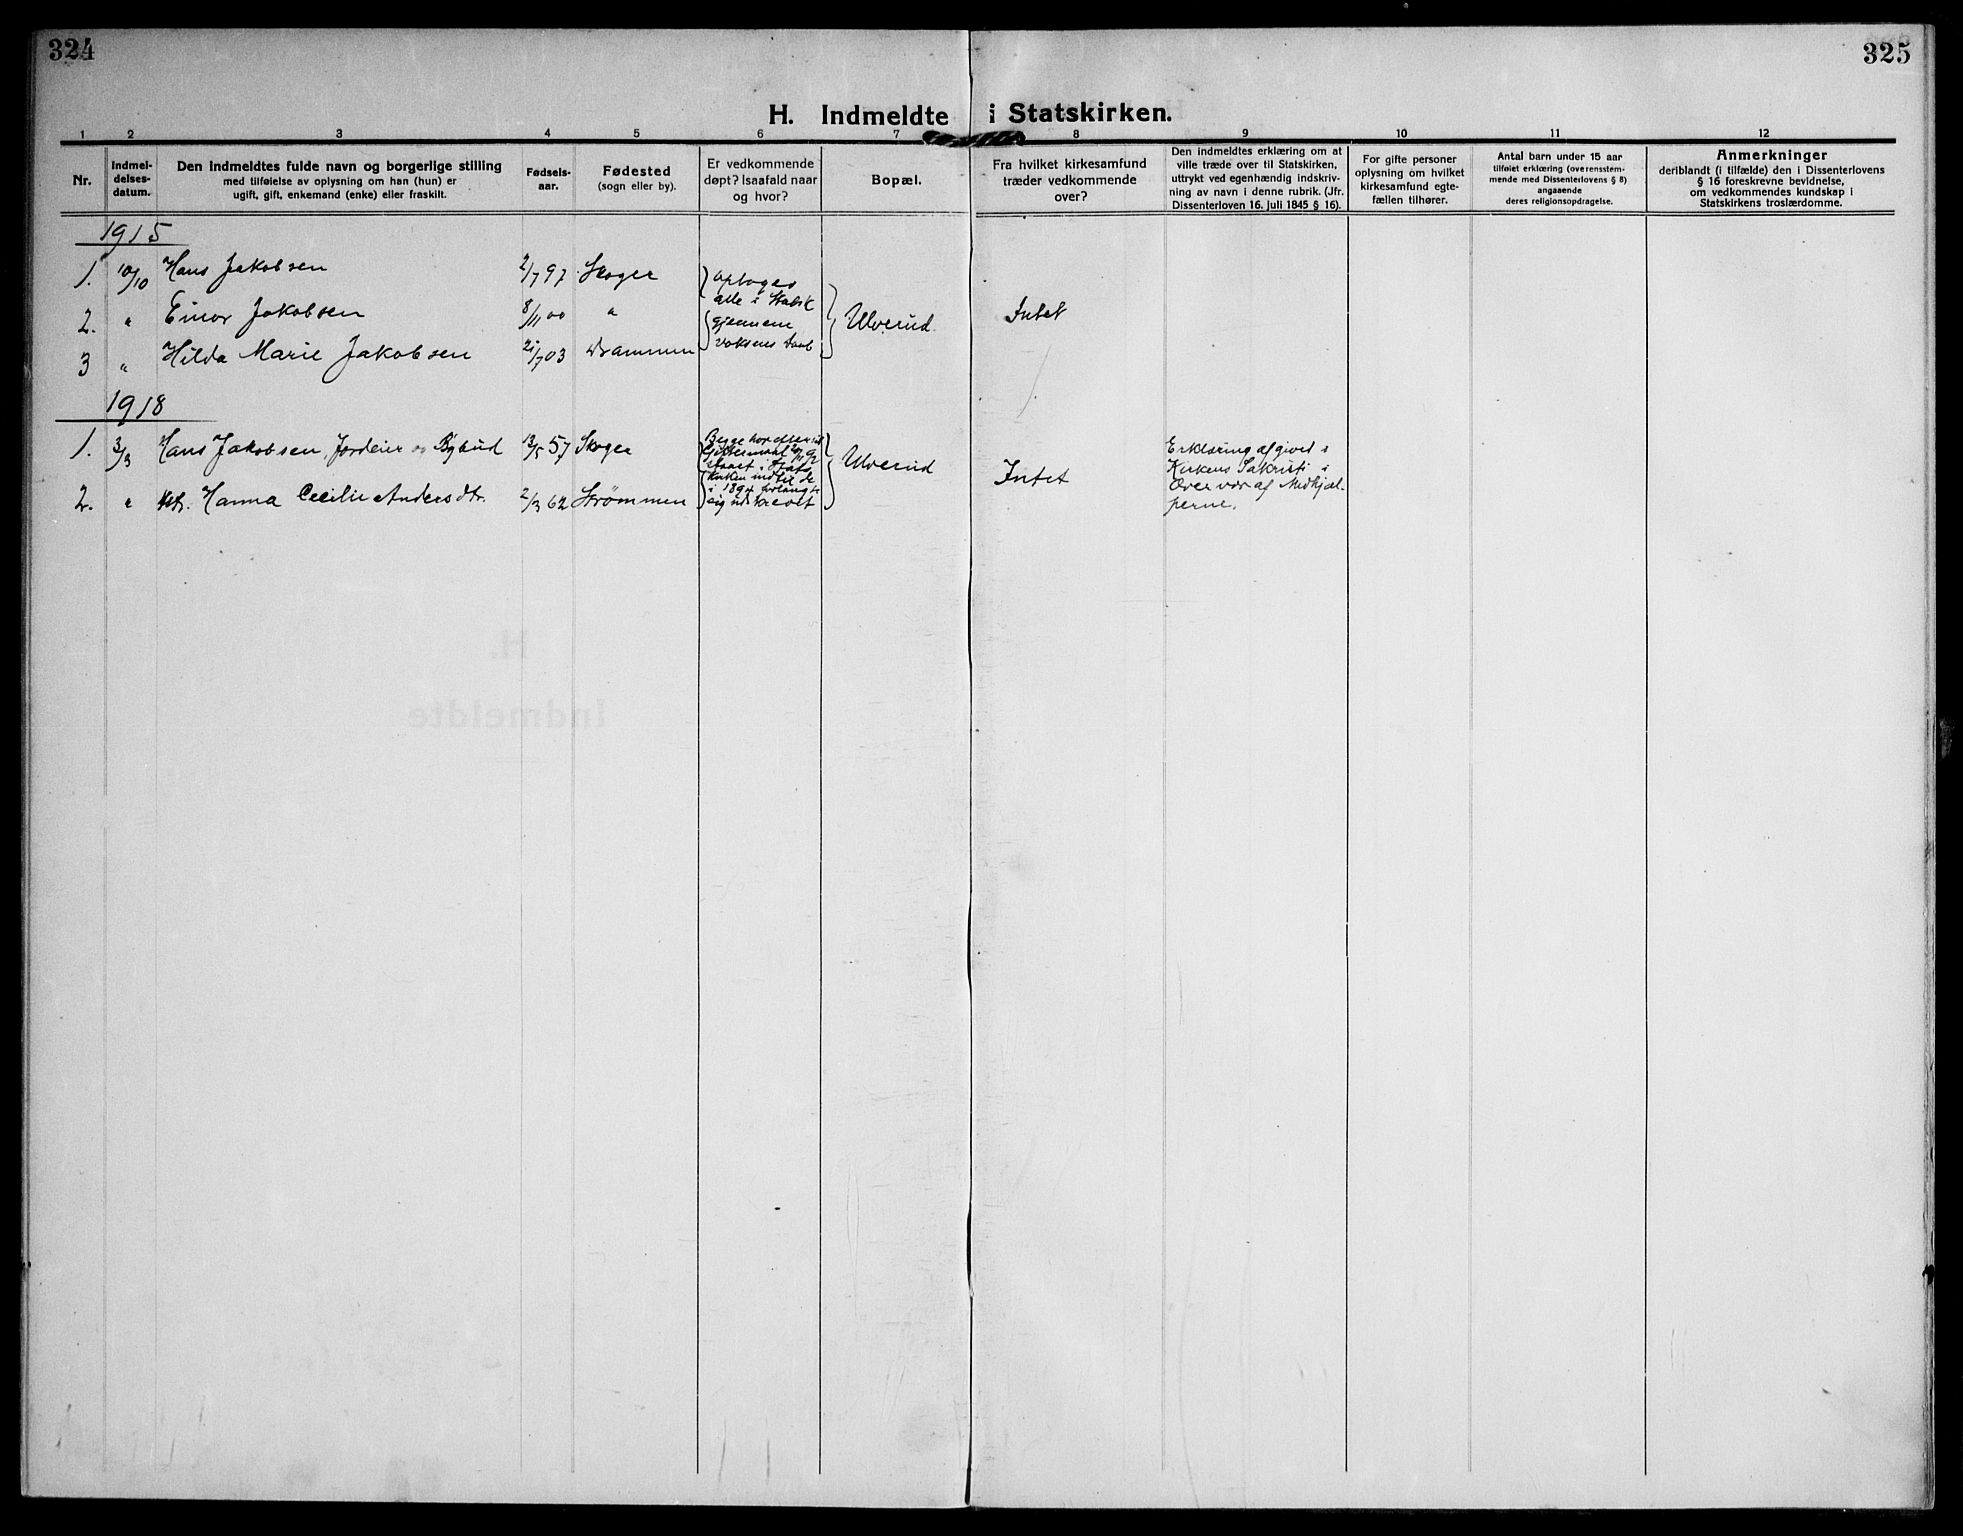 324
325
H. Indmeldte i Statskirken.
1 2 3 4 5 6 7 8 9 10 11 12
Nr.
Indmel-
delses-
datum.
Den indmeldtes fulde navn og borgerlige stilling
med tilføielse av oplysning om han (hun) er
ugift, gift, enkemand (enke) eller fraskilt.
Fødsels-
aar.
Fødested
(sogn eller by).
Er vedkommende
døpt? Isaafald naar
og hvor?
Bopæl.
Fra hvilket kirkesamfund
træder vedkommende
over?
Den indmeldtes erklæring om at
ville træde over til Statskirken,
uttrykt ved egenhændig indskriv-
ning av navn i denne rubrik. (Jfr.
Dissenterloven 16. juli 1845 § 16).
For gifte personer
oplysning om hvilket
kirkesamfund egte-
fællen tilhører.
Antal barn under 15 aar
tilføiet erklæring (overensstem-
mende med Dissenterlovens § 8)
angaaende
deres religionsopdragelse.
Anmerkninger
deriblandt (i tilfælde) den i Dissenterlovens
§ 16 foreskrevne bevidnelse,
om vedkommendes kundskap i
Statskirkens troslærdomme.
1915
1. 10/10 Hans Jakobsen 2/7 97 Skoger
2. " Einar Jakobsen 8/11 00 "
3 " Hilda Marie Jakobsen 21/7 03 Drammen
optoges
alle i Statsk
gjennem
voksens Daab
Ulverud
Intet
1918
1. 3/3 Hans Jakobsen, Jordeier og 13/5 57 Skoger
2. " Hanna Cecilie Andersdtr. 2/3 62 Strømmen
Begge har efter sit
Giftermaal
staaet i Stats
kirken indtil de
i 1894 forlangte
sig udskrevet
Ulverud
Intet
Erklæring afgived i
Kirkens Sakristi i
Overvær af Medhjæl-
perne.